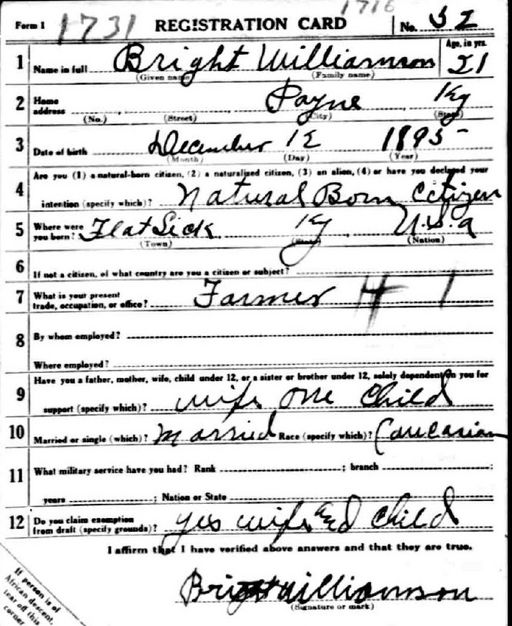 1716
Form 1 1731 REGISTRATION CARD No. 52
1 Name in full Bright Williamson Age, in yrs. 21
(Given name) (Family name)
2 Home address Payne Ky
(No.) (Street) (City) (State)
3 Date of birth December 12 1895
(Month) (Day) (Year)
4 Are you (1) a natural-born citizen, (2) a naturalized citizen, (3) an alien, (4) or have you declared your
intention (specify which)? Natural Born Citizen
5 Where were you born? Flat Lick Ky U.S.a
(Town) (State) (Nation)
6 If not a citizen, of what country are you a citizen or subject?
7 What is your present trade, occupation, or office? Farmer 1
8 By whom employed?
Where employed?
9 Have you a father, mother, wife, child under 12, or a sister or brother under 12, solely dependent on you for
support (specify which)? wife one Child
10 Married or single (which)? Married Race (specify which)? Caucasian
11 What military service have you had? Rank ; branch ;
years ; Nation or State
12 Do you claim exemption from draft (specify grounds)? yes wife and child
I affirm that I have verified above answers and that they are true.
Bright Williamson
(Signature or mark)
If person is of
African descent,
tear off this
corner